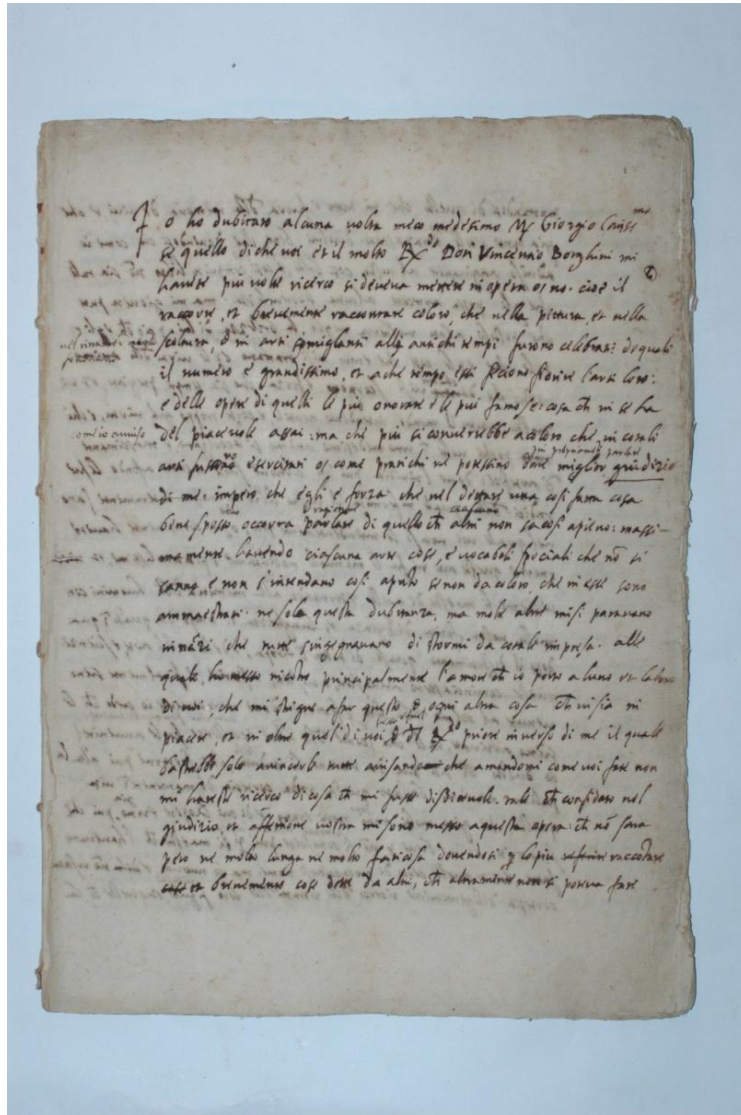 Io ho dubitato alcuna volta meco medesimo Mr Giorgio Cariss.mo
se quello di che voi et il molto Rx.do Don Vincenzio Borghini mi
havete piu volte ricerco si deveva mettere in opera o no. cioè il
raccorre, et brevemente raccontare coloro, che nella pittura, et nella
scoltura, o in arti simiglianti alle antichi tempi furono celebrati: de quali
il numero è grandissimo, et a che tempo essi feciono fiorire l'arti loro:
e delle opere di quelli le piu onorate e le piu famose: cosa ch in se ha
come io avviso
del piacevole assai: ma che piu si converrebbe a coloro che in cotali
arti fussero esercitati o come pratichi ne potessino dare miglior giudizio
di me: impero che egli è forza che nel dettare una cosi fatta cosa
bene spesso occorra parlare di quello ch altri non sa cosi apieno: massi-
mamente havendo ciascuna arte cose, e vocaboli speciali che nō si
sanno, e non s'intendano cosi aputo se non da coloro, che in esse sono
ammaestrati. ne solo questa dubitanza, ma molte altre mi si paravano
innāzi che tutte s'ingegnavano di stormi da cotale impresa. alle
quale ho messo incōtro principalmente l'amore ch io porto
di voi, che mi strigne a far questo, ogni altra cosa ch vi sia in
piacere, et in oltre quel di voi inverso di me il quale
solo a vincerle tutte avisando che amandomi come voi fate non
mi hareste ricerco di cosa ch mi fusse disdicevole. tale ch confidato nel
giudizio, et affezione vostra mi sono messo a questa opera: ch nō sara
pero ne molto lunga ne molto faticosa dovendosi p lo piu raccōtare
et brevemente cose dette da altri, ch altramente non si poteva fare